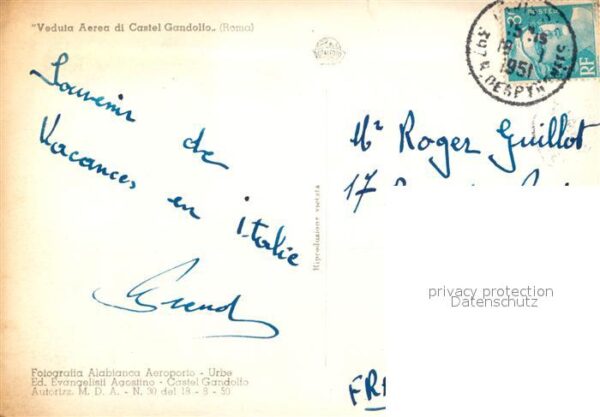 "Veduta Aerea di Castel Gandolfo„ (Roma)
Souvenir de
Vacances en italie
Fotografia Alabianca Aeroporto - Urbe
Ed. Evangelisti Agostino - Castel Gandolfo
Autorizz. M. D. A. - N. 30 del 18 - 8 - 50
Riproduzione vietata
1951
RF
Mr Roger Guillot
17
privacy protection
Datenschutz